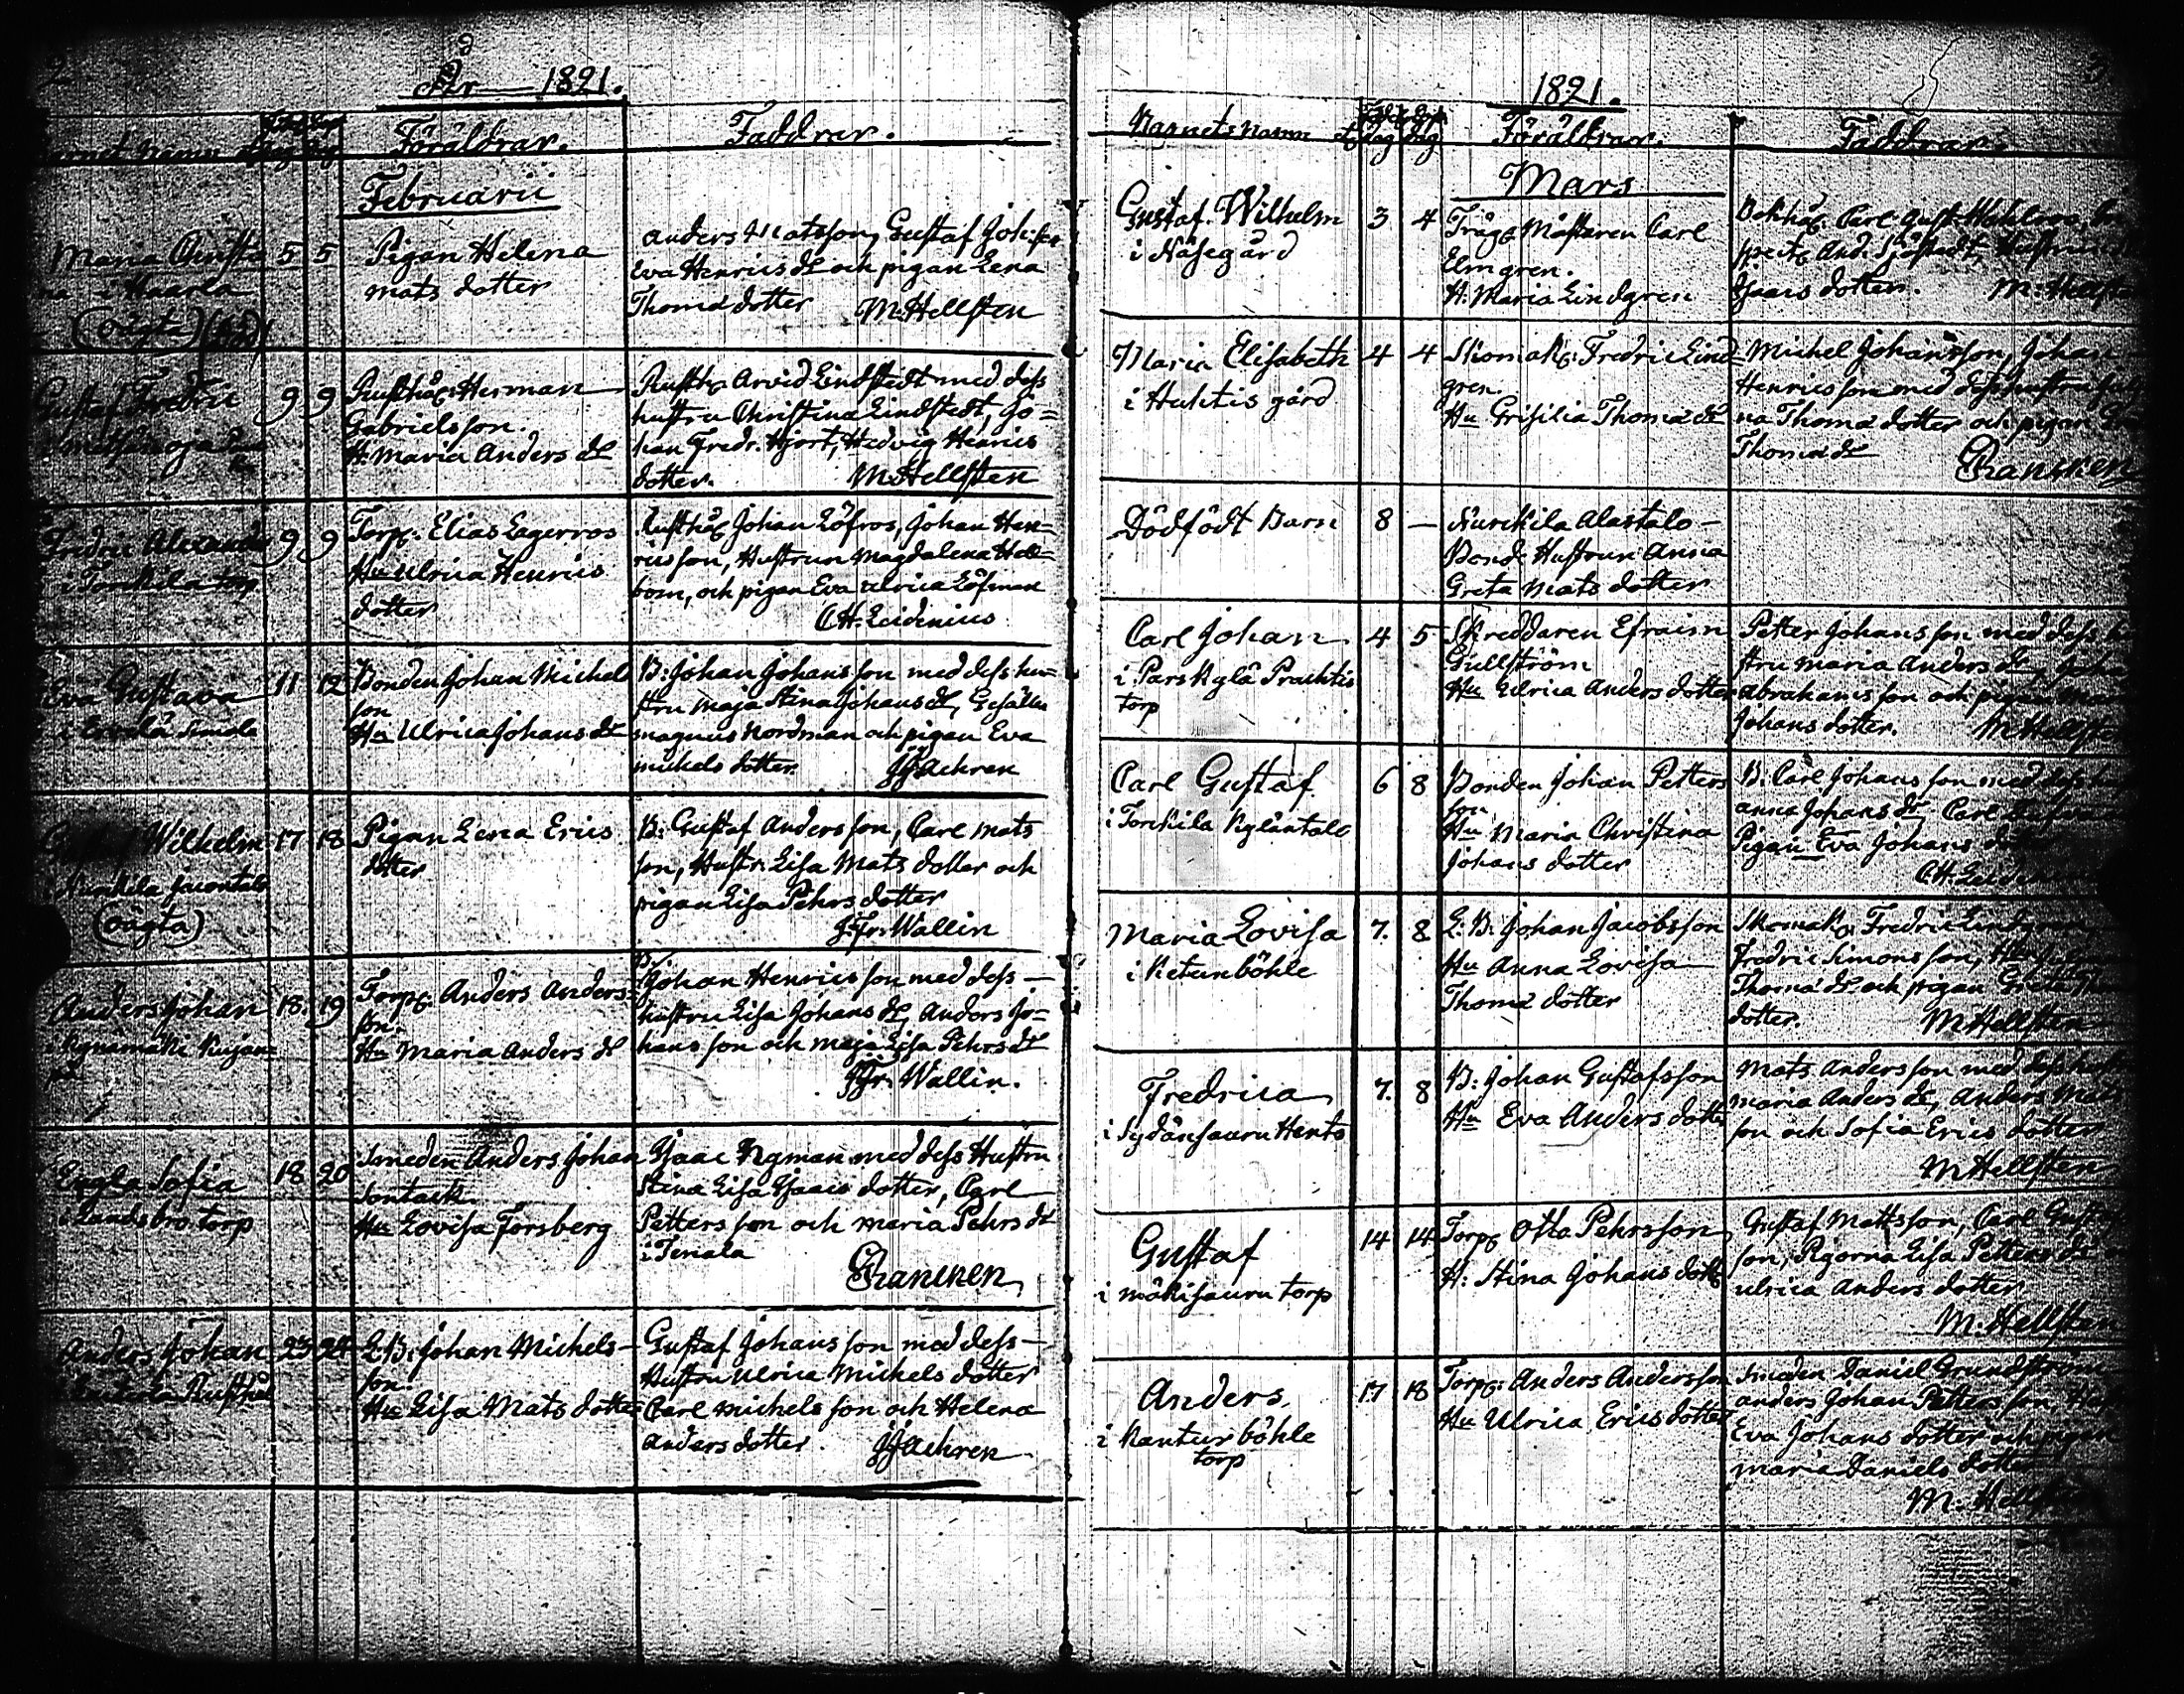 2
År 1821.
Barnets Namn Föräldrar. Faddrar.
Februarii
Maria Christi
na i Haarla
(oägt)
5 5
Pigan Helena
Mats dotter
Anders Matsson, Gustaf Joh:son
Eva Henrics dr och pigan Lena
Thomä dotter M:Hellsten
Gustaf Fredric
9 9
Rusthåll: Herman
Gabrielsson.
H: Maria Anders dr
Rusth: Arvid Lindstedt med dess
hustru Christina Lindstedt, Jo=
han Fredr. Hjort, Hedvig Henrics
dotter. M:Hellsten
Fredric Alexander
i Torkkila torp
9 9
Torp: Elias Lagerros
Hu Ulrica Henrics
dotter
Rusthåll Johan Löfros, Johan Hen=
ricsson, Hustrun Magdalena Hell=
bom, och pigan Eva Ulrica Löfman
CH. Leidenius
Eva Gustava
11 12
Bonden Johan Michel
son
Hu Ulrica Johans dr
B: Johan Johansson med dess hu=
stru Maja Stina Johans dr, Gesällen
Magnus Nordman och pigan Eva
Michels dotter JJAchren
Wilhelm
(oägta)
17 18
Pigan Lena Erics
dotter
B: Gustaf Andersson, Carl Mats
son, Hustr. Lisa Mats dotter och
pigan Lisa Pehrs dotter
J:Fr. Wallin
Anders Johan
18. 19
Torp: Anders Anders=
son.
Hu Maria Anders dr
Johan Henricsson med dess
hustru Lisa Johans dr, Anders Jo=
hansson och Maja Lisa Pehrs dr
JFr. Wallin.
Engla Sofia
i Landsbro torp
18 20
Smeden Anders Johan
Sontack
Hu Lovisa Forsberg
Isaac Nyman med dess Hustru
Stina Lisa Isaacs dotter, Carl
Petters son och Maria Pehrs dr
i Tenala
Francken
Anders Johan
23 24
L:B: Johan Michels
son.
Hu Lisa Mats dotter
Gustaf Johansson med dess
Hustru Ulrica Michels dotter
Carl Michelsson och Helena
Anders dotter. JJAchren
3
1821.
Barnets Namn Föräldrar. Faddrar.
Mars
Gustaf Wilhelm
i Näsegård
3 4
Trägs Mästaren Carl
Elmgren.
H: Maria Lindgren
Bokhål. Carl Gust.
spect. And. Sjöstedt, Hustrun
Isaacs dotter. M:Hellsten
Maria Elisabeth
i Huhtis gård
4 4
Skomak: Fredric Lind
gren
Hu Grisilia Thomä dr
Michel Johansson, Johan
Henricsson med dess hustru
na Thomä dotter och pigan
Thomä dr Francken
Dödfödt Barn
8 —
Nurckila Alastalo
Bond. Hustrun Anna
Greta Mats dotter
Carl Johan
i Parskylä Prachtis
torp
4 5
Skreddaren Efraim
Gullström
Hu Ulrica Anders dotter
Petter Johansson med dess hu
stru Maria Anders dr, Johan
Abrahamsson och pigan
Johans dotter. M:Hellsten
Carl Gustaf
i Torkkila Kyläntalo
6 8
Bonden Johan Petters
son
Hu Maria Christina
Johans dotter
B: Carl Johansson med dess
Anna Johans dr, Carl
Pigan Eva Johans dotter
CH. Leidenius
Maria Lovisa
i Ketunböhle
7. 8
L:B: Johan Jacobsson
Hu Anna Lovisa
Thomä dotter
Skomak: Fredric Lindgren,
Fredric Simonsson, Hu
Thomä dr och pigan Greta
dotter. MHellsten
Fredrica
i Sydänsauru Hento
7. 8
B: Johan Gustafsson
Hu Eva Anders dotter
Mats Andersson med dess hustru
Maria Anders dr, Anders Mats
son och Sofia Erics dotter
MHellsten
Gustaf
i Mäkisauru torp
14 14
Torp: Otto Pehrsson
H: Stina Johans dotter
Gustaf Mattsson, Carl Gustaf
son, Pigorna Lisa Petters dr
Ulrica Anders dotter
M:Hellsten
Anders
i Kanturböhle
torp
17 18
Torp: Anders Andersson
Hu Ulrica Erics dotter
Smeden Daniel Grundström
Anders Johan Pettersson
Eva Johans dotter och pigan
Maria Daniels dotter
M:Hellsten